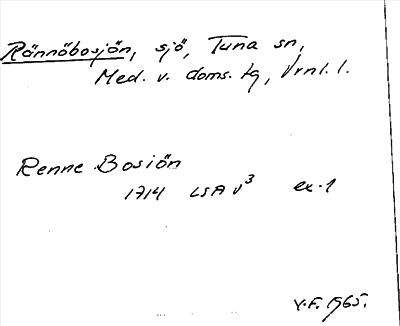 Rönnöbosjön, sjö, Tuna sn,
Med. v. doms. tg, Vrnl. l.
Renne Bosiön
1714 LSA V³ ex. 1
V.F. 1965.